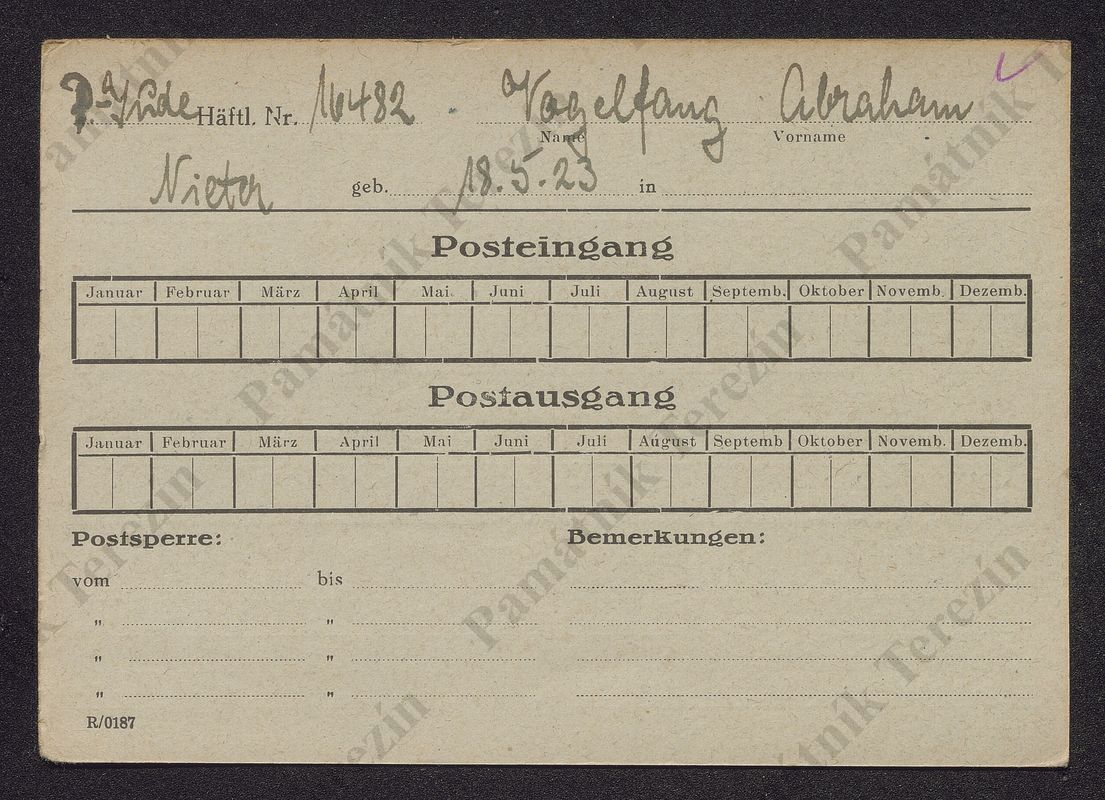 P.-Jude Häftl. Nr. 16482 Vogelfang Abraham
Name Vorname
Nieter geb. 18.5.23 in
Posteingang
Januar Februar März April Mai Juni Juli August Septemb. Oktober Novemb. Dezemb.
Postausgang
Januar Februar März April Mai Juni Juli August Septemb Oktober Novemb. Dezemb.
Postsperre: Bemerkungen:
vom bis
" "
" "
" "
R/0187
Památník Terezín
Památník Terezín
Památník Terezín
Památník Terezín